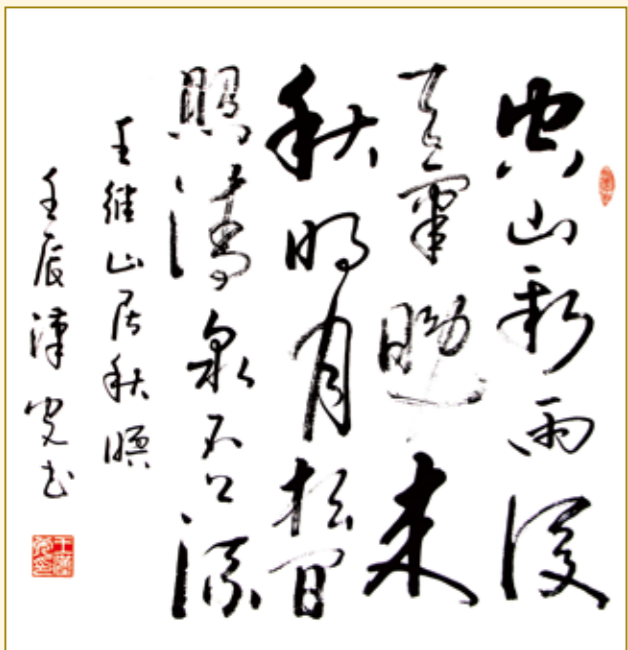 空山新雨後
天氣晚來
秋明月松間
照清泉石上流
王維山居秋暝
壬辰漢书